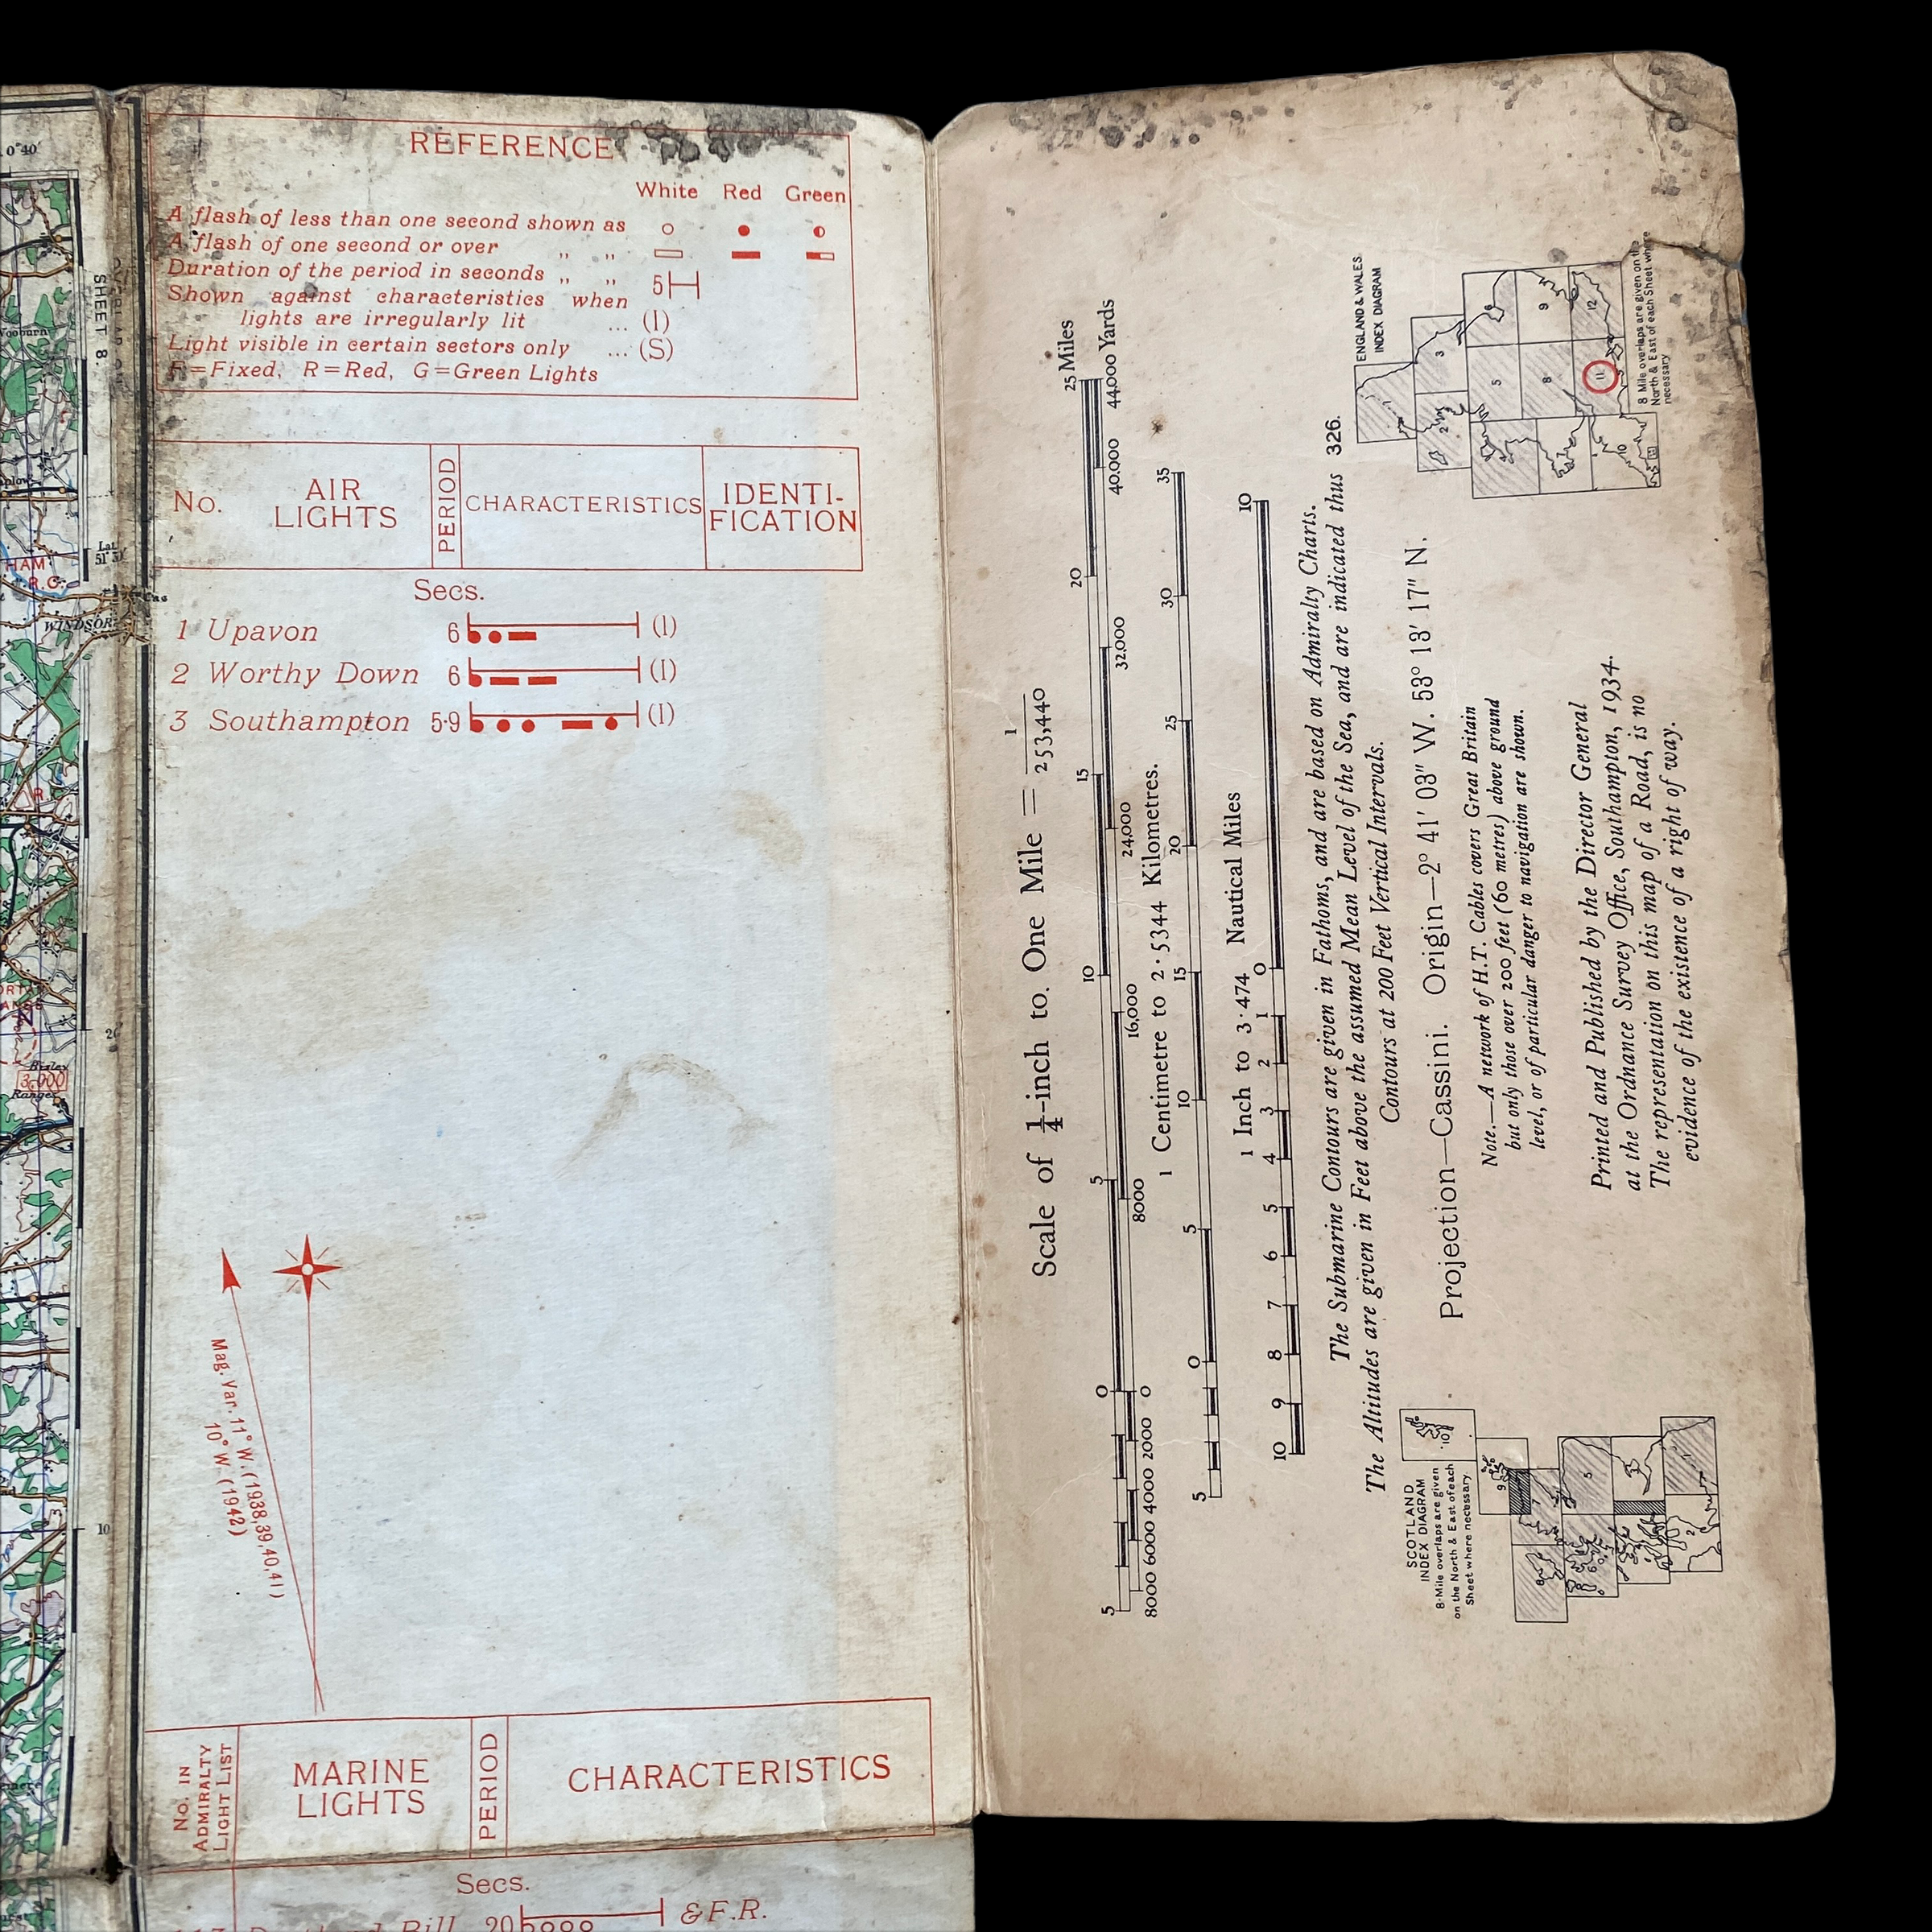 0°40'
SHEET 8.
Lat.
WINDSOR
Bisley
3,000
Ranges
10
REFERENCE
White Red Green
A flash of less than one second shown as
A flash of one second or over „ „
Duration of the period in seconds „ „ 5
Shown against characteristics when
lights are irregularly lit ... (I)
Light visible in certain sectors only ... (S)
F=Fixed, R=Red, G=Green Lights
No. AIR LIGHTS PERIOD CHARACTERISTICS IDENTI-FICATION
Secs.
1 Upavon 6 (I)
2 Worthy Down 6 (I)
3 Southampton 5·9 (I)
Mag. Var. 11° W. (1938,39,40,41)
10° W. (1942)
No. IN ADMIRALTY LIGHT LIST MARINE LIGHTS PERIOD CHARACTERISTICS
Secs.
20 & F.R.
Scale of ¼-inch to One Mile = 1/253,440
5 0 5 10 15 20 25 Miles
8000 6000 4000 2000 0 8000 16,000 24,000 32,000 40,000 44,000 Yards
1 Centimetre to 2·5344 Kilometres.
5 0 5 10 15 20 25 30 35
1 Inch to 3·474 Nautical Miles
10 9 8 7 6 5 4 3 2 1 0 10
The Submarine Contours are given in Fathoms, and are based on Admiralty Charts.
The Altitudes are given in Feet above the assumed Mean Level of the Sea, and are indicated thus 326.
Contours at 200 Feet Vertical Intervals.
Projection—Cassini. Origin—2° 41' 03" W. 53° 13' 17" N.
Note.—A network of H.T. Cables covers Great Britain
but only those over 200 feet (60 metres) above ground
level, or of particular danger to navigation are shown.
Printed and Published by the Director General
at the Ordnance Survey Office, Southampton, 1934.
The representation on this map of a Road, is no
evidence of the existence of a right of way.
SCOTLAND
INDEX DIAGRAM
8-Mile overlaps are given
on the North & East of each
Sheet where necessary
ENGLAND & WALES.
INDEX DIAGRAM
8 Mile overlaps are given on the
North & East of each Sheet where
necessary